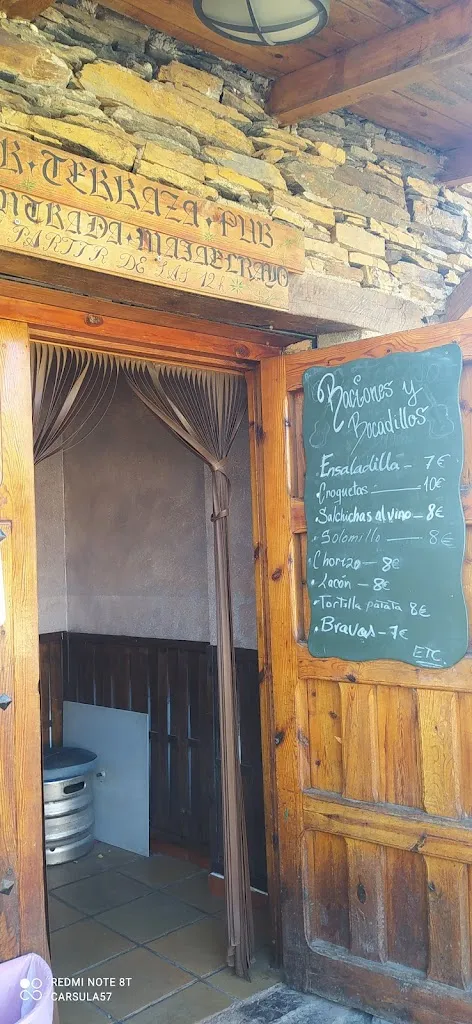 R · TERRAZA · PUB
ENTRADA · MAJAELRAYO
A PARTIR DE LAS 12h
Raciones y
Bocadillos
Ensaladilla - 7€
Croquetas — 10€
Salchichas al vino - 8€
Solomillo — 8€
Chorizo - 8€
Lacón - 8€
Tortilla patata 8€
Bravas - 7€
ETC.
REDMI NOTE 8T
CARSULA57